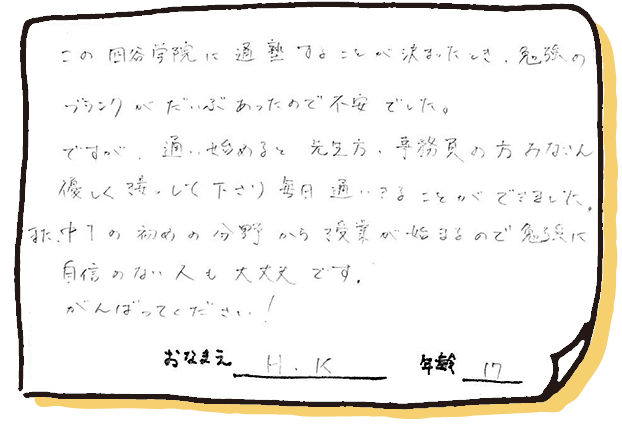 この四谷学院に通塾することが決まったとき、勉強の
ブランクがだいぶあったので不安でした。
ですが、通い始めると先生方、事務員の方みなさん
優しく接して下さり毎日通いきることができました。
また、中1の初めの分野から授業が始まるので勉強に
自信のない人も大丈夫です。
がんばってください!
おなまえ H.K 年齢 17